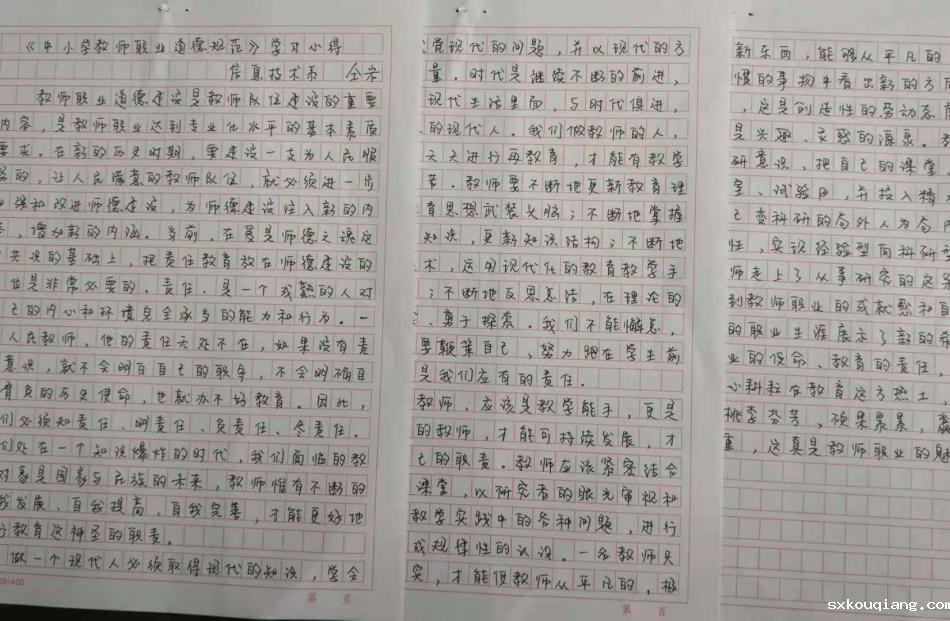 《中小学教师职业道德规范》学习心得
信息技术系
教师职业道德建设是教师队伍建设的重要
内容，是教师职业达到专业化水平的基本素质
要求。在新的历史时期，要建设一支为人民服
的，让人民满意的教师队伍，就必须进一步
强和改进师德建设，为师德建设注入新的内
，增加新的内涵。当前，在爱是师德之魂这
共识的基础上，把责任教育放在师德建设的
位是非常必要的。责任，是一个成熟的人对
己的内心和环境完全承当的能力和行为。一
人民教师，他的责任无处不在，如果没有责
意识，就不会明白自己的职争，不会明确自
肩负的历史使命，也就办不好教育。因此，
们必须知责任、明责任、负责任、尽责任。
们处在一个知识爆炸的时代，我们面临的教
对象是国家与民族的未来，教师惟有不断的
我发展、自我提高、自我完善，才能更好地
教育这神圣的职责。
做一个现代人必须取得现代的知识，学会
20×400
第 页
觉现代的问题，并以现代的方
量。时代是继续不断的前进，
现代生活里面，与时代俱进，
的现代人。我们做教师的人，
天天进行再教育，才能有教学
苦。教师要不断地更新教育理
育思想武装头脑；不断地掌握
知识，更新知识结构；不断地
术，运用现代化的教育教学手
；不断地反思总结，在理论的
、勇于探索。我们不能懈怠，
要鞭策自己，努力跑在学生前
是我们应有的责任。
教师，应该是教学能手，更是
的教师，才能可持续发展，才
己的职责。教师应该紧密结合
课堂，以研究者的眼光审视和
教学实践中的各种问题，进行
成规律性的认识。一名教师只
究，才能使教师从平凡的、极
第 页
新东西，能够从平凡的
惯的事物中看出新的方
，这是创造性的劳动态度
是兴趣、灵感的源泉。
研意识，把自己的课堂
室、试验田，并投入精
己变科研的局外人为局内
性，实现经验型向科研型
师走上了从事研究的这条
到教师职业的成就感和自
的职业生涯展示了新的
业的使命、教育的责任，
心耕耘在教育这方热土，
桃李芬芳、硕果累累，
，这真是教师职业的魅
sxkouqiang.com